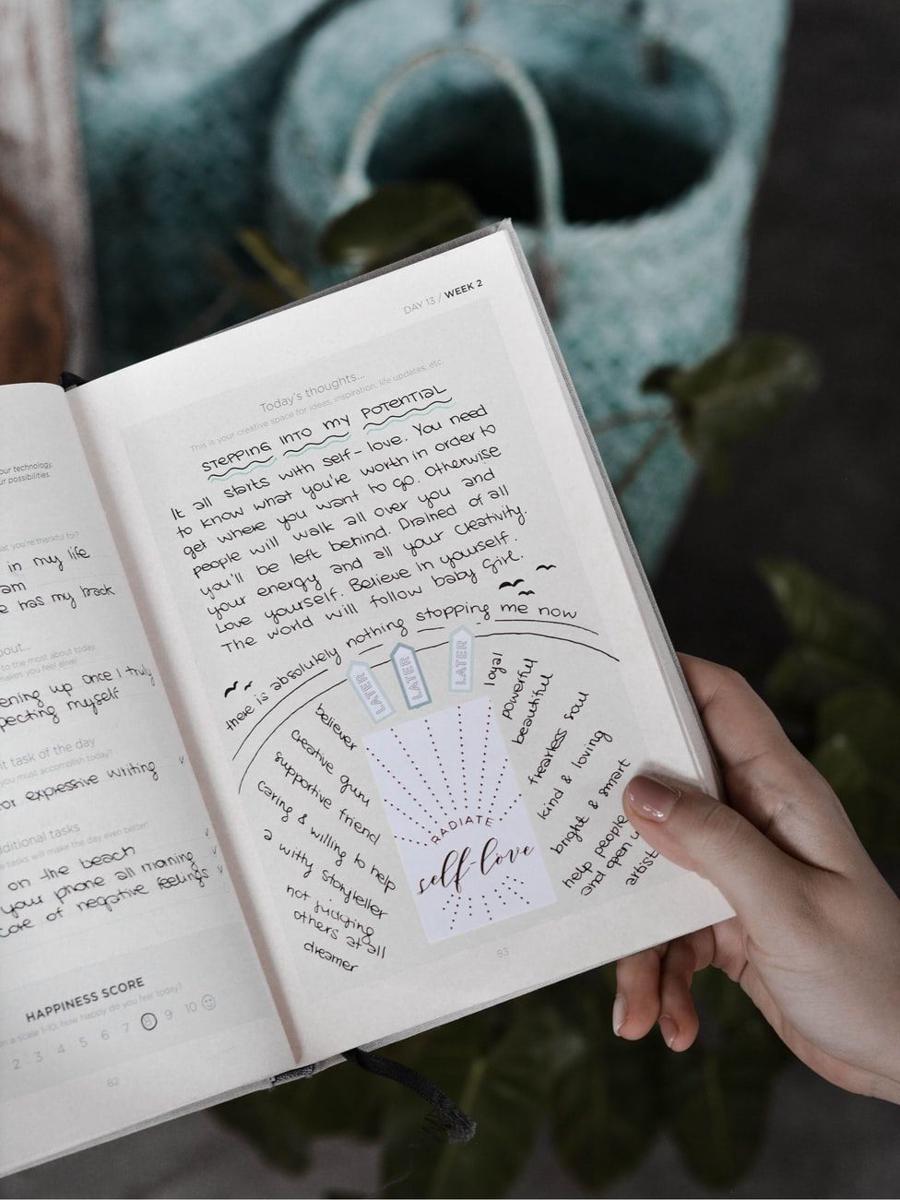 our technology,
ur possibilities.
at you're thankful for?
in my life
am
e has my back
bout...
to the most about today.
makes you feel alive!
ening up once I truly
pecting myself
it task of the day
you must accomplish today?
or expressive writing
dditional tasks
tasks will make the day even better!
on the beach
your phone all morning
care of negative feelings
HAPPINESS SCORE
on a scale 1-10, how happy do you feel today?
2 3 4 5 6 7 8 9 10
82
DAY 13 / WEEK 2
Today's thoughts...
This is your creative space for ideas, inspiration, life updates, etc.
STEPPING INTO MY POTENTIAL
It all starts with self-love. You need
to know what you're worth in order to
get where you want to go. Otherwise
people will walk all over you and
you'll be left behind. Drained of all
your energy and all your creativity.
Love yourself. Believe in yourself.
The world will follow baby girl.
there is absolutely nothing stopping me now
LATER
LATER
LATER
believer
creative guru
supportive friend
caring & willing to help
a witty storyteller
not judging
others at all
dreamer
RADIATE
self-love
loyal
powerful
beautiful
fearless soul
kind & loving
bright & smart
help people
and open u
artist
93